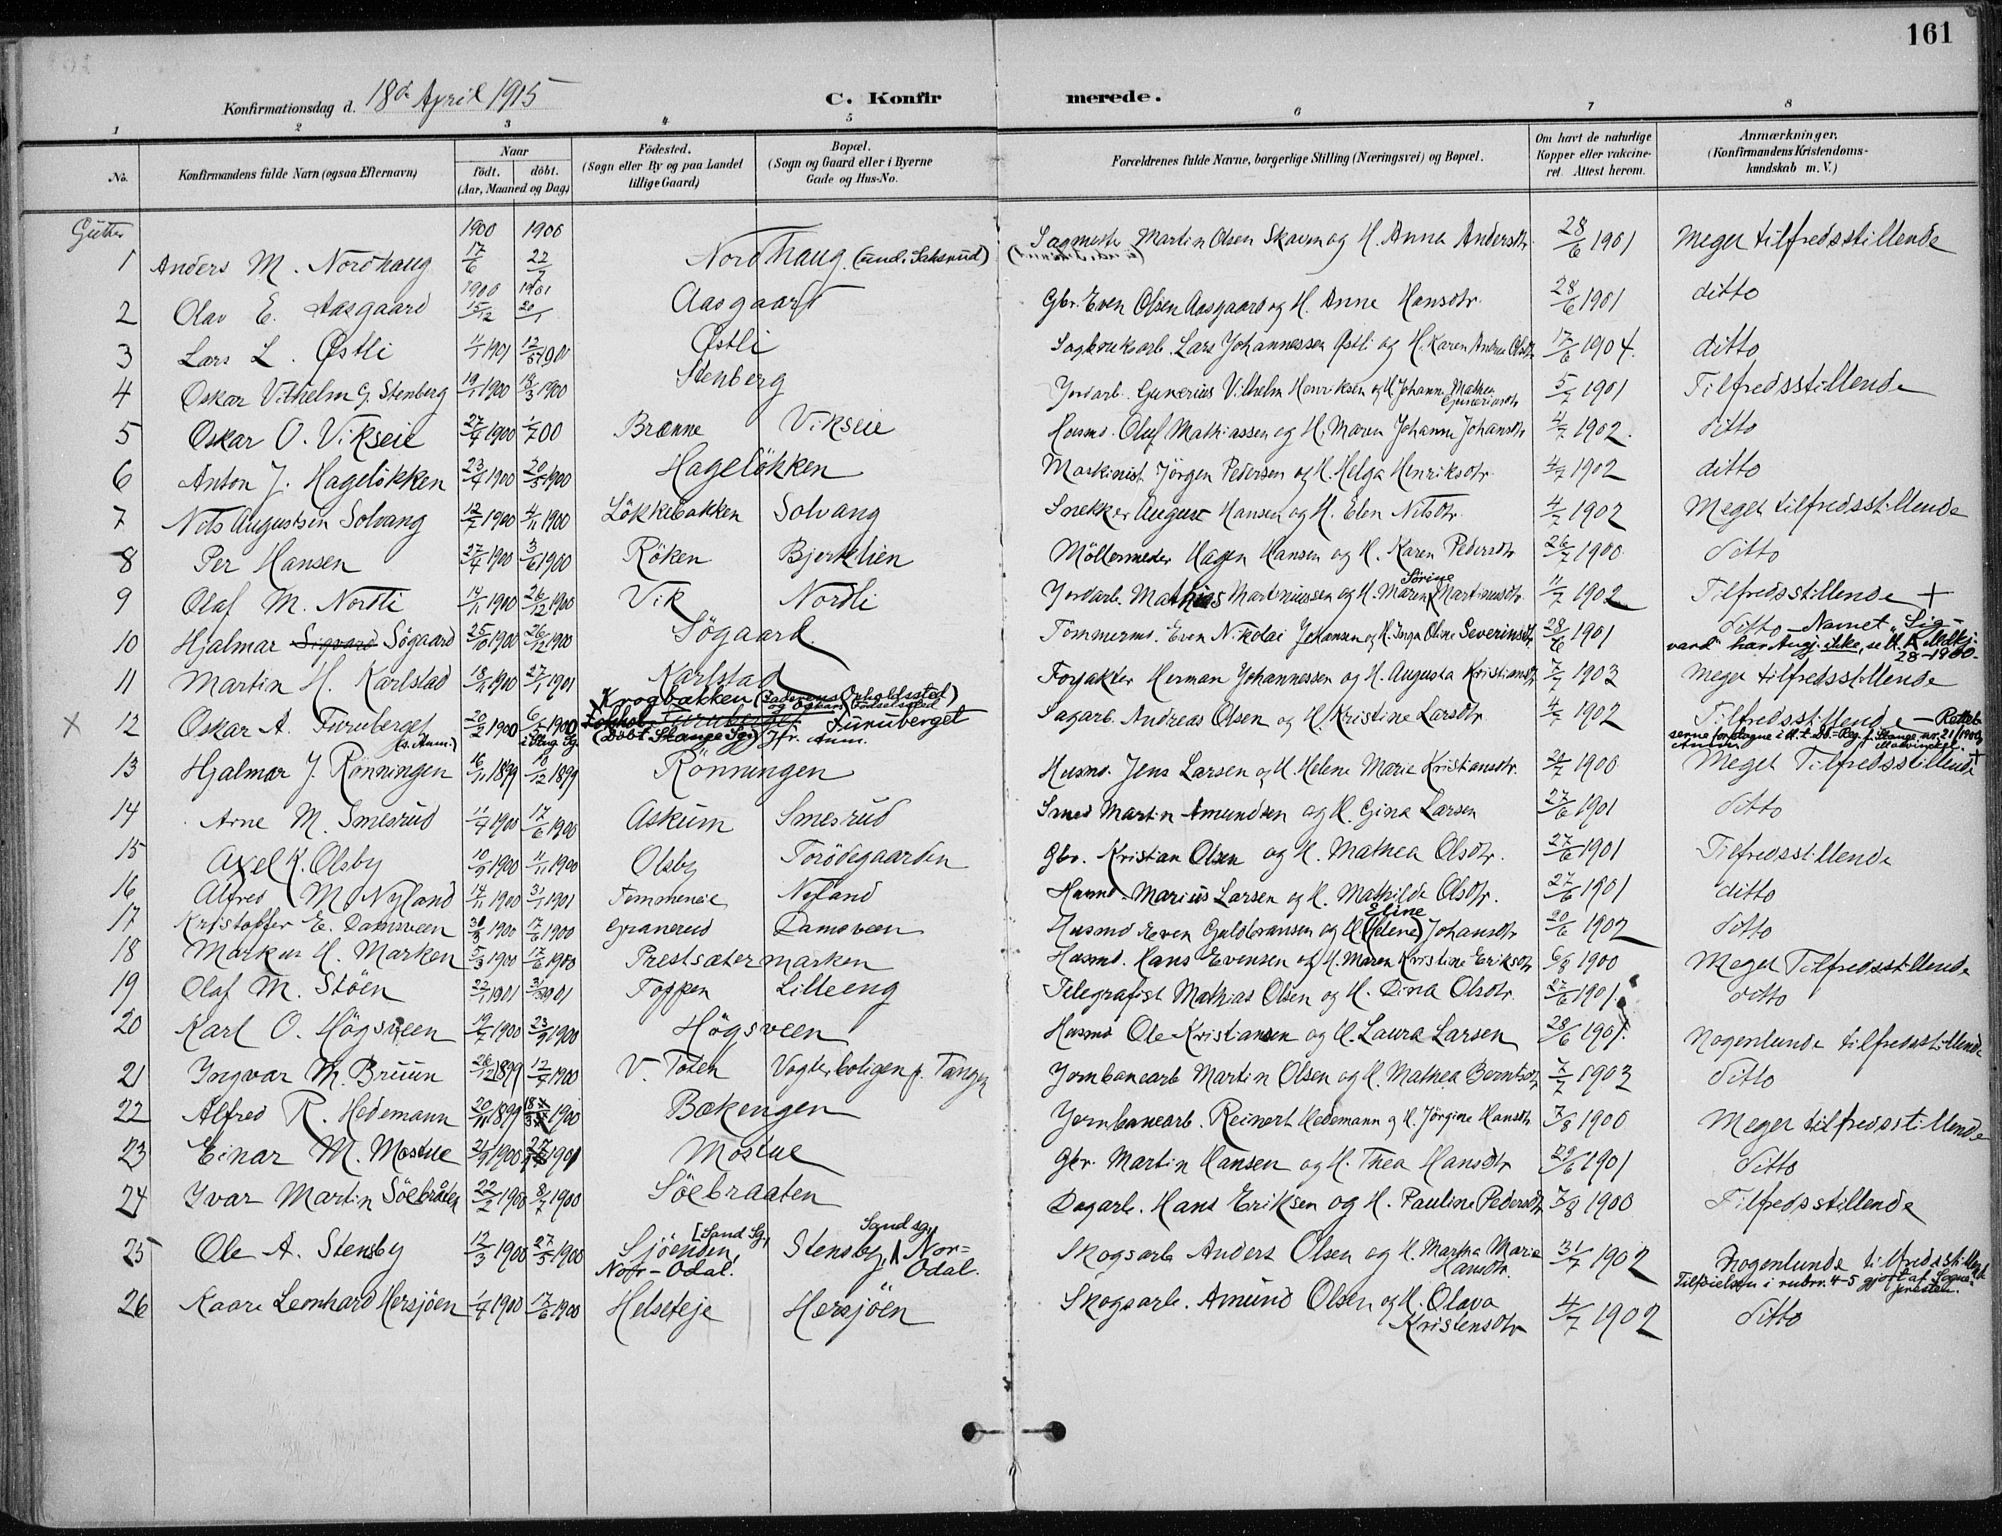 161
Konfirmationsdag d. 18de April 1915 C. Konfirmerede.
1 2 3 4 5 6 7 8
No. Konfirmandens fulde Navn (ogsaa Efternavn) Naar födt. döbt. (Aar, Maaned og Dag) Födested. (Sogn eller By og paa Landet tillige Gaard) Bopæl. (Sogn og Gaard eller i Byerne Gade og Hus-No. Forældrenes fulde Navne, borgerlige Stilling (Næringsvei) og Bopæl. Om havt de naturlige Kopper eller vakcineret. Attest herom. Anmærkninger, (Konfirmandens Kristendomskundskab m. V.)
Gutter
1 Anders M. Nordhaug 1900 17/6 1900 22/7 Nordhaug (und. Saksrud) Sagmester Martin Olsen Skaven og H. Anna Andersdtr. 28/6 1901 Meget tilfredsstillende
2 Olav E. Aasgaard 1900 15/12 1901 20/1 Aasgaard Gbr. Even Olsen Aasgaard og H. Anne Hansdtr. 28/6 1901 ditto
3 Lars L. Østli 1901 1900 Østli Sagbruksarb. Lars Johannessen Østli og H. Karen Andrea Olsdtr. 17/6 1904. ditto
4 Oskar Vilhelm G. Stenberg 19/1 1900 18/3 1900 Stenberg Jordarb. Gunerius Vilhelm Henriksen og H. Johanne Mathea Guneriusdtr 5/7 1901 Tilfredsstillende
5 Oskar O. Vikseie 27/4 1900 1/7 00 Brænne Vikseie Husmd. Oluf Mathiassen og H. Maren Johanne Johansdtr 4/7 1902. ditto
6 Anton J. Hagelökken 23/4 1900 20/5 1900 Hagelökken Maskinist Jörgen Pedersen og H. Helga Henriksdtr. 4/7 1902 ditto
7 Nils Augustsen Solvang 12/7 1900 4/11 1900 Lökkebakken Solvang Snekker August Hansen og H. Elen Nilsdtr. 4/7 1902 Meget tilfredsstillende
8 Per Hansen 27/4 1900 3/6 1900 Röken Bjerklien Möllermester Hagen Hansen og H. Karen Pedersdtr 26/7 1900 ditto
9 Olaf M. Nordli 14/11 1900 26/12 1900 Vik Nordli Jordarb. Mathias Martinussen og H. Maren Sörine Martinusdtr. 11/7 1902 Tilfredsstillende +
10 Hjalmar Sigvard Sögaard 25/10 1900 26/12 1900 Sögaard Tömmermd. Even Nikolai Johansen og H. Inga Oline Severinsdtr. 28/6 1901 ditto – Navnet „Sigvard" har Angj. ikke, se H. K. Mdkj. 28-1900.
11 Martin H. Karlstad 18/11 1900 27/1 1901 Karlstad Forpakter Herman Johannessen og H. Augusta Kristiansdtr 7/7 1903 Meget tilfredsstillende
X 12 Oskar A. Furuberget (s. Anm.) 20/2 1900 6/5 1900 i Stange Sg. Krogbakken (Faderens Opholdssted og Oskars Födselssted) Furuberget (Döbt Stange Sg.) Jfr. Anm. Furuberget Sagarb. Andreas Olsen og H. Kristine Larsdtr. 4/7 1902 Tilfredsstillende – Rettelserne
13 Hjalmar J. Rönningen 16/11 1899 10/12 1899 Rönningen Husmd. Jens Larsen og H. Helene Marie Kristiansdtr. 1900 Meget Tilfredsstillende +
14 Arne M. Smesrud 11/4 1900 17/6 1900 Askum Smesrud Smed Martin Amundsen og H. Gina Larsen 27/6 1901 ditto
15 Axel K. Olsby 10/9 1900 4/11 1900 Olsby Torödegaarden Gbr. Kristian Olsen og H. Mathea Olsdtr. 27/6 1901 Tilfredsstillende
16 Alfred M. Nyland 14/11 1900 3/1 1901 Femmeneie Nyland Husmd. Marius Larsen og H. Mathilde Olsdtr. 27/6 1901 ditto
17 Kristoffer E. Damsveen 1900 17/6 1900 Granerud Damsveen Husmd Even Guldbransen og H. (Helene) Eline Johansdtr 20/6 1902 ditto
18 Markus H. Marken 5/3 1900 17/6 1900 Prestsætermarken Husmd. Hans Evensen og H. Maren Kristine Eriksdtr 6/8 1900 Meget Tilfredsstillende
19 Olaf M. Stöen 22/1 1901 1901 Toppen Lilleeng Telegrafist Mathias Olsen og H. Dina Olsdtr. 27/6 1901 ditto
20 Karl O. Högsveen 19/7 1900 23/9 1900 Högsveen Husmd Ole Kristiansen og H. Laura Larsen 28/6 1901. Nogenlunde tilfredsstillende
21 Ingvar M. Bruun 26/12 1899 1900 V. Toten Vogterboligen p. Tangen Jernbanearb Martin Olsen og H. Mathea Berntsdtr 7/7 1903 ditto
22 Alfred R. Hedemann 20/11 1899 1900 Bækengen Jernbanearb. Reinert Hedemann og H. Jörgine Hansdtr 7/8 1900 Meget tilfredsstillende
23 Einar M. Mostue 1900 1901 Mostue Gbr. Martin Hansen og H. Thea Hansdtr 29/6 1901 ditto
24 Ivar Martin Söebråten 22/2 1900 8/7 1900 Söebraaten Dagarb. Hans Eriksen og H. Pauline Pedersdtr 7/8 1900 Tilfredsstillende
25 Ole A. Stensby 12/3 1900 27/5 1900 Sjöenden, [Sand Sg. Nor-Odal. Stensby, Sand sg., Nor-Odal. Skogsarb Anders Olsen og H. Martha Marie Hansdtr. 31/7 1902 Nogenlunde tilfredsstillende Tilföielsen i rubr. 4-5 gjort af Sognepresten.
26 Kaare Leonhard Hersjöen 1/4 1900 17/6 1900 Helseteje Hersjöen Skogsarb. Amund Olsen og H. Olava Kristensdtr 4/7 1902 ditto